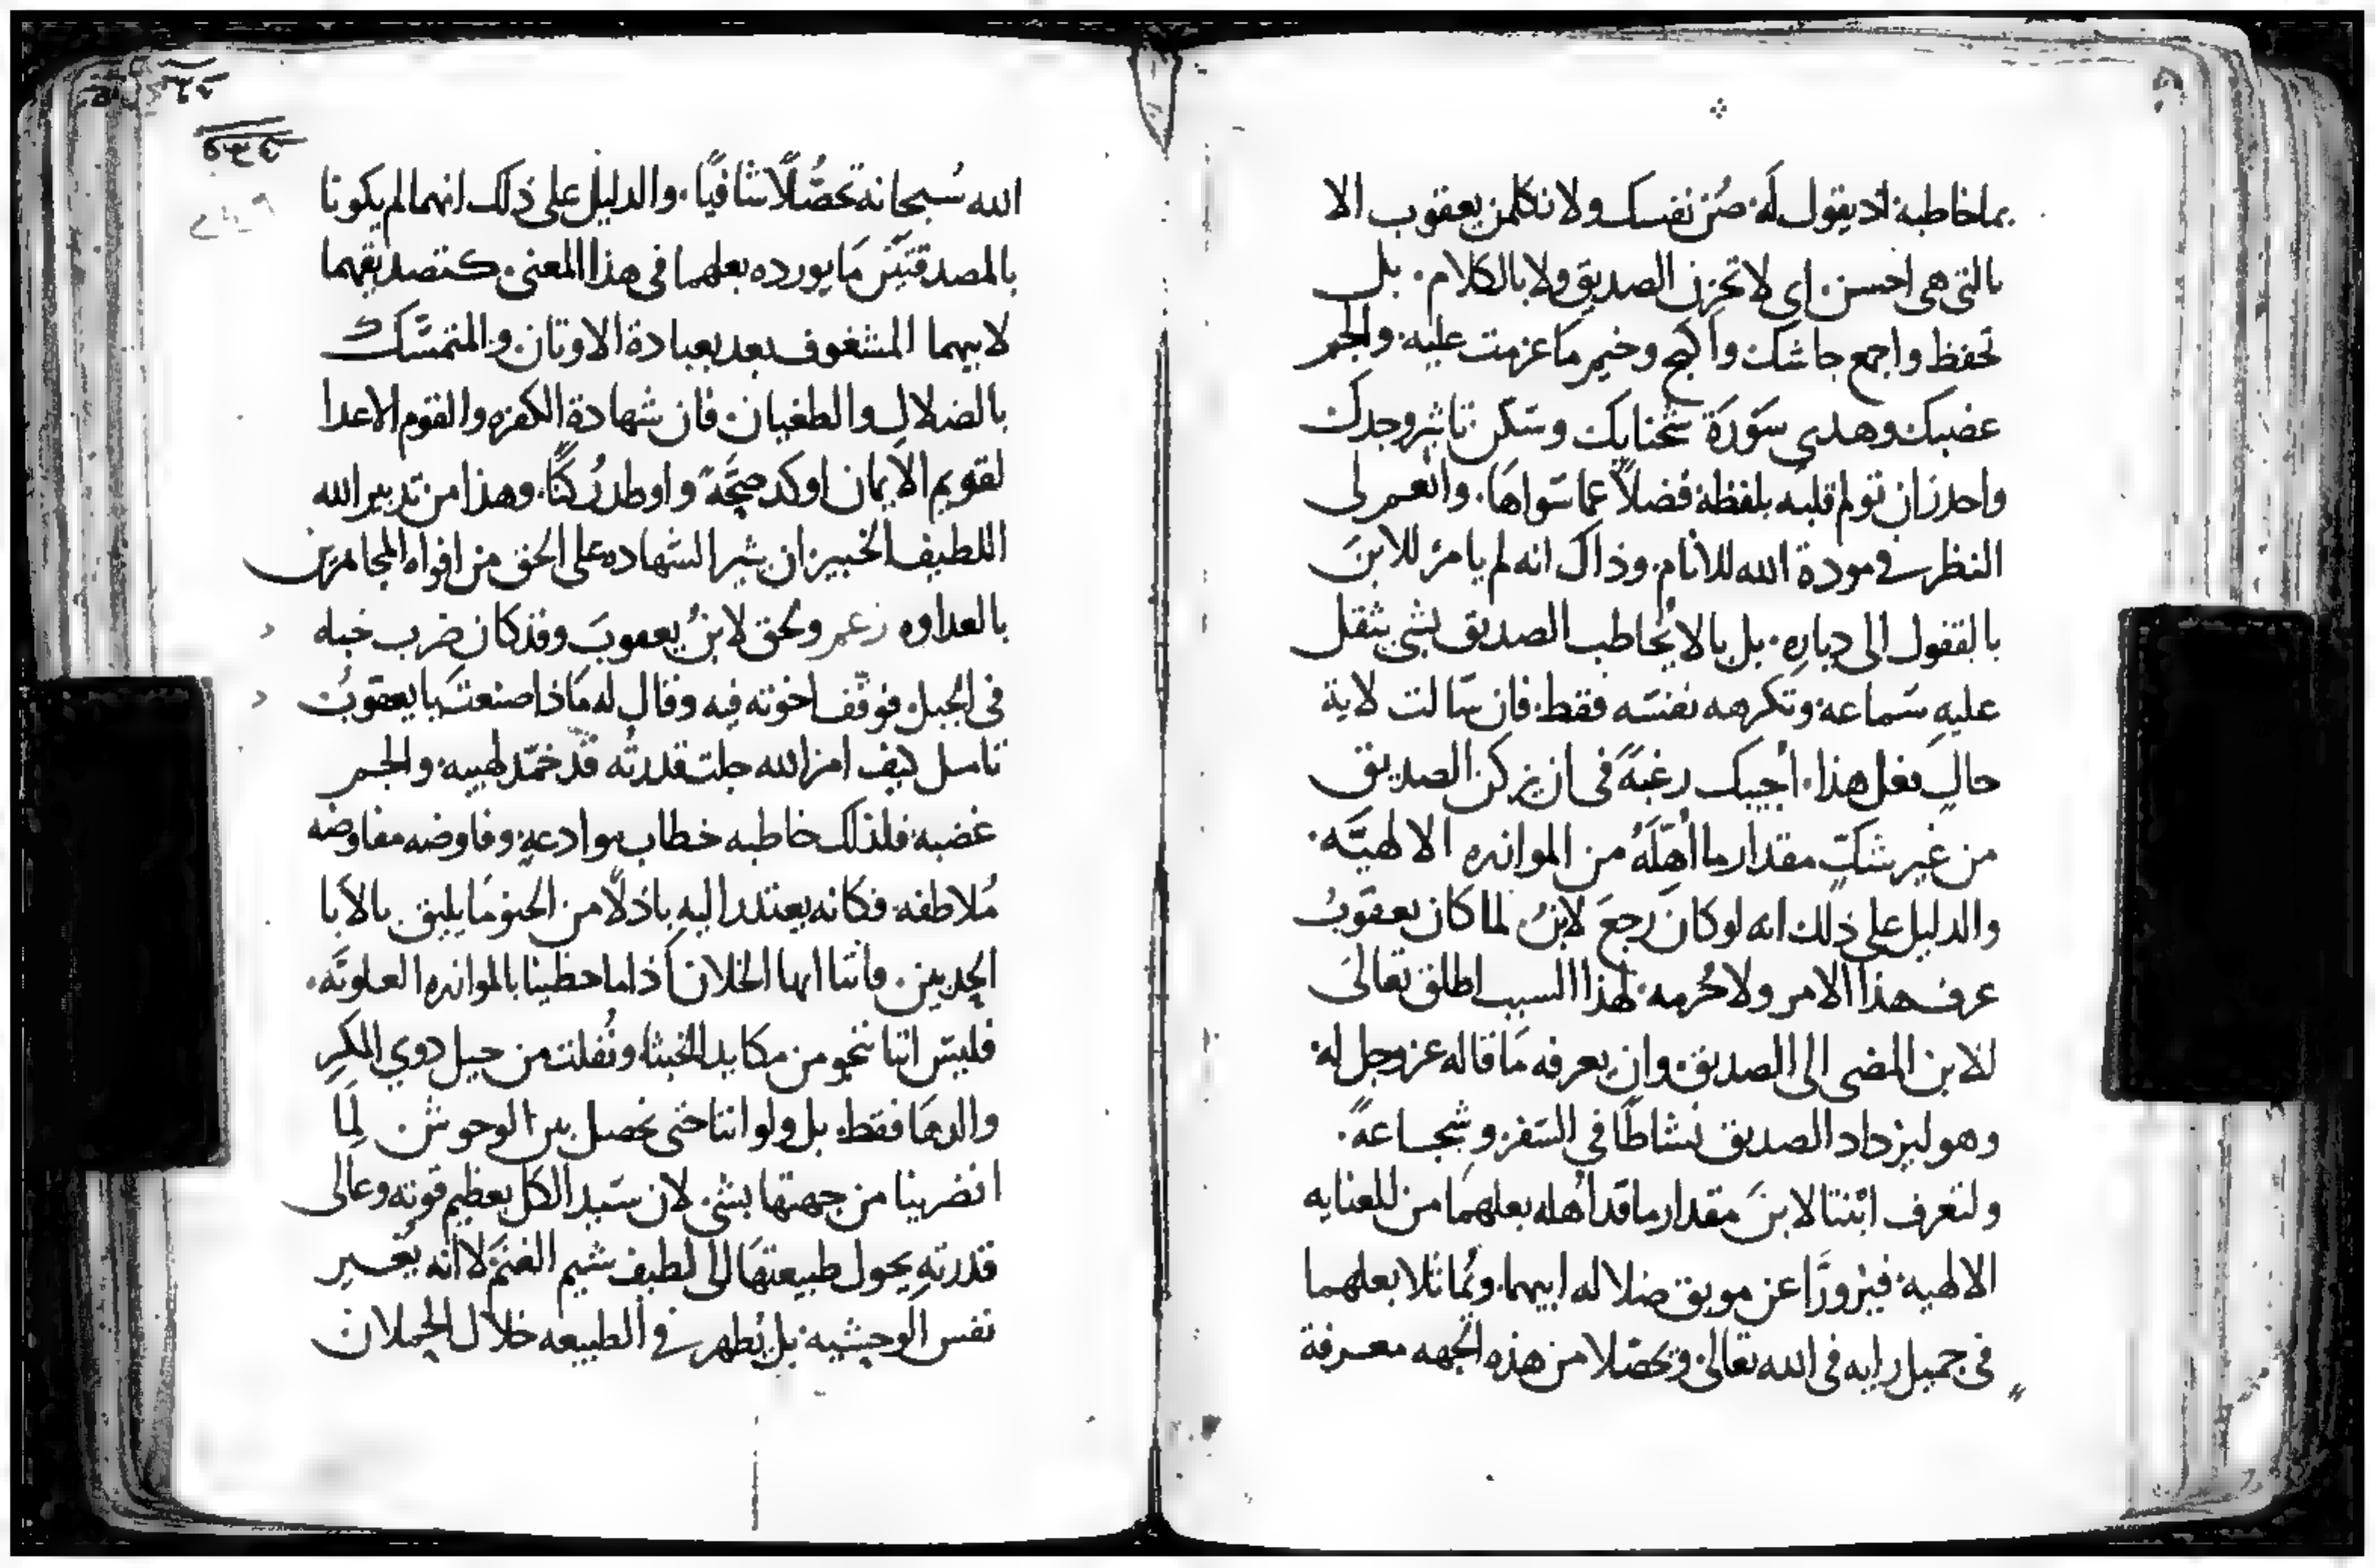 بماخاطبه اذ يقول له صُن نفسك ولا تكلمن يعقوب الا
بالتي هي احسن. اي لا تحزن الصديق ولا بالكلام. بل
تحفظ واجمع جاشك وأكبح وخيم ما عزمت عليه. والجم
غضبك وهدي سَوْرَة شحنايك وسكن تاثير وجدك
واحذر ان تولم قلبه بلفظة فضلاً عما سواها. وانعم لي
النظر في مودة الله للانام. وذاك انه لم يامر للابنَ
بالقفول الى دياره. بل بالا يُخاطب الصديق بشي يثقل
عليه سماعه وتكرهه نفسه فقط. فان سالت لاية
حالٍ فعل هذا. أجيبك رغبةً في ان يزكن الصديق
من غير شكٍ مقدار ما أهّلَهُ من الموازره الالهيّه.
والدليل على ذلك انه لو كان رجعَ لابنُ لما كان يعقوبُ
عرف هذا الامر ولا حُرمه. لهذا السبب اطلق تعالى
للابن المضي الى الصديق. وان يعرفه ما قاله عز وجل له.
وهو ليزداد الصديق نشاطًا في السفر وشجاعةً.
ولتعرف ابنتا لابنَ مقدار ما قد أهله بعلهما من للعنايه
الالهيه. فيزورّا عن موبق ضلاله ابيهما. ويُماثلا بعلهما
في جميل رايه في الله تعالى. ويحصّلا من هذه الجهه معرفة
الله سُبحانه تحصُّلاً شافيًا. والدليل على ذلك انهما لم يكونا
بالمصدقتَين ما يورده بعلهما في هذا المعنى. كتصديقهما
لابيهما المشغوف بعد بعبادة الاوثان. والمتمسّك
بالضلال والطغيان. فان شهادة الكفره والقوم الاعدا
لقويم الايمان اوكد حجّةً واوطد رُكنًا. وهذا من تدبير الله
اللطيف الخبير ان يثير الشهاده على الحق من افواه المجاهرين
بالعداوه زعم ولحق لابنُ يعقوبَ وقد كان ضرب خباه
في الجبل. فوقّف اخوته فيه وقال له ماذا صنعتَ يا يعقوبُ
تامل كيف امر الله جلت قدرتُه قد خمّد لهيبه. والجم
غضبه. فلذلك خاطبه خطاب موادعةٍ وفاوضه مفاوضه
مُلاطفه. فكانه يعتذر اليه باذلاً من الحنو ما يليق بالابا
الحدبين. فاننا ايها الخلان أذا ما حظينا بالموازره العلويّه.
فليس اننا ننجو من مكايد الخبثا، ونُفلت من حيل ذوي المكر
والدها فقط. بل ولو اننا حتى نحصل بين الوحوش لِمَا
انضرينا من جهتها بشي. لان سَيد الكل بعظيم قوته وعالى
قدرتهِ يحول طبيعتها الى لطيف شيم الغنم لا انه يُغير
نفس الوحيشيه. بل يُظهر في الطبيعه خلال الحملان